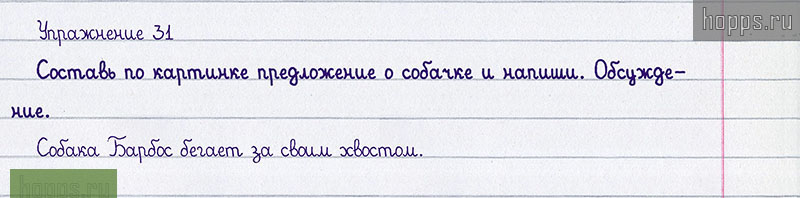 hopps.ru
Упражнение 31
Составь по картинке предложение о собачке и напиши. Обсужде-
ние.
Собака Барбос бегает за своим хвостом.
hopps.ru